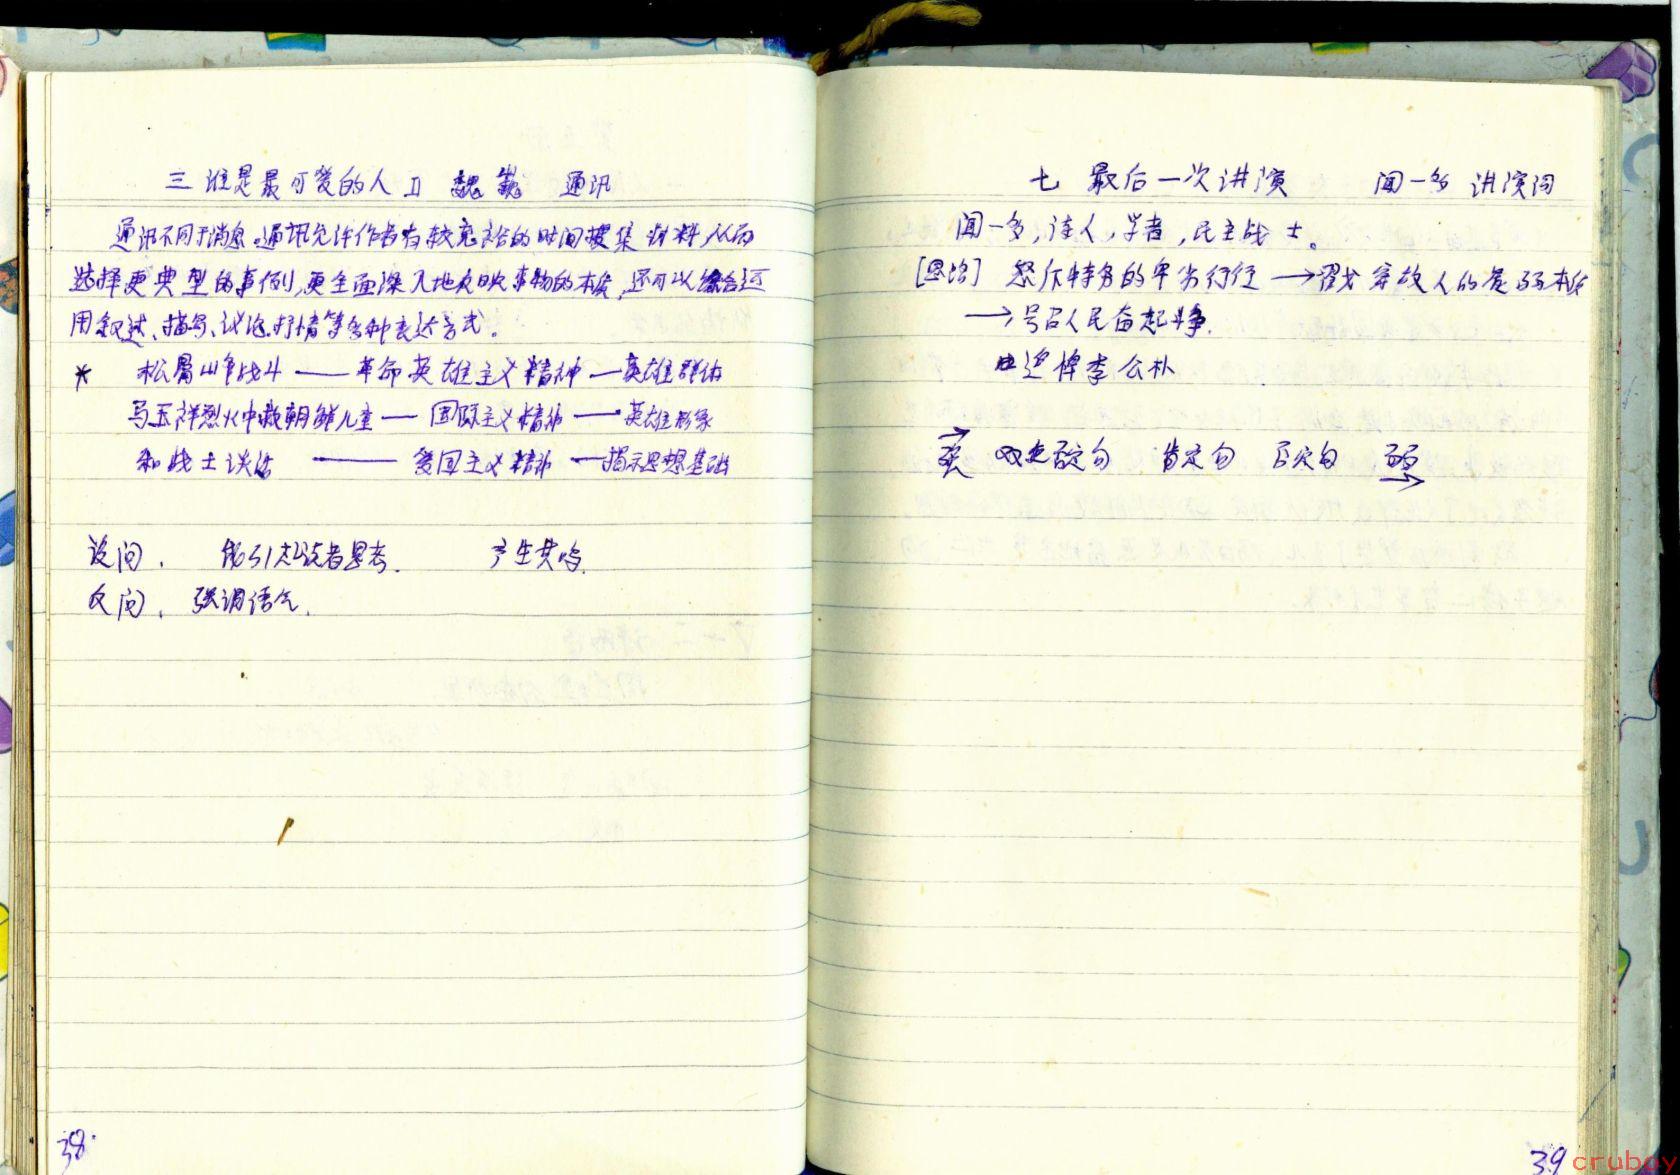 三 谁是最可爱的人 II 魏巍 通讯
通讯不同于消息。通讯允许作者有较充裕的时间搜集材料,从而
选择更典型的事例,更全面深入地反映事物的本质,还可以综合运
用叙述、描写、议论、抒情等各种表达方式。
* 松骨峰战斗 —— 革命英雄主义精神 — 英雄群体
马玉祥烈火中救朝鲜儿童 — 国际主义精神 — 英雄形象
和战士谈话 —— 爱国主义精神 — 揭示思想基础
设问. 能引起读者思考. 产生共鸣.
反问. 强调语气.
38.
七 最后一次讲演 闻一多 讲演词
闻一多,诗人,学者,民主战士。
[思路] 怒斥特务的卑劣行径 → 戳穿敌人的虚弱本质
→ 号召人民奋起斗争.
追悼李公朴
双重否定句 肯定句 否定句 弱
39 cruboy